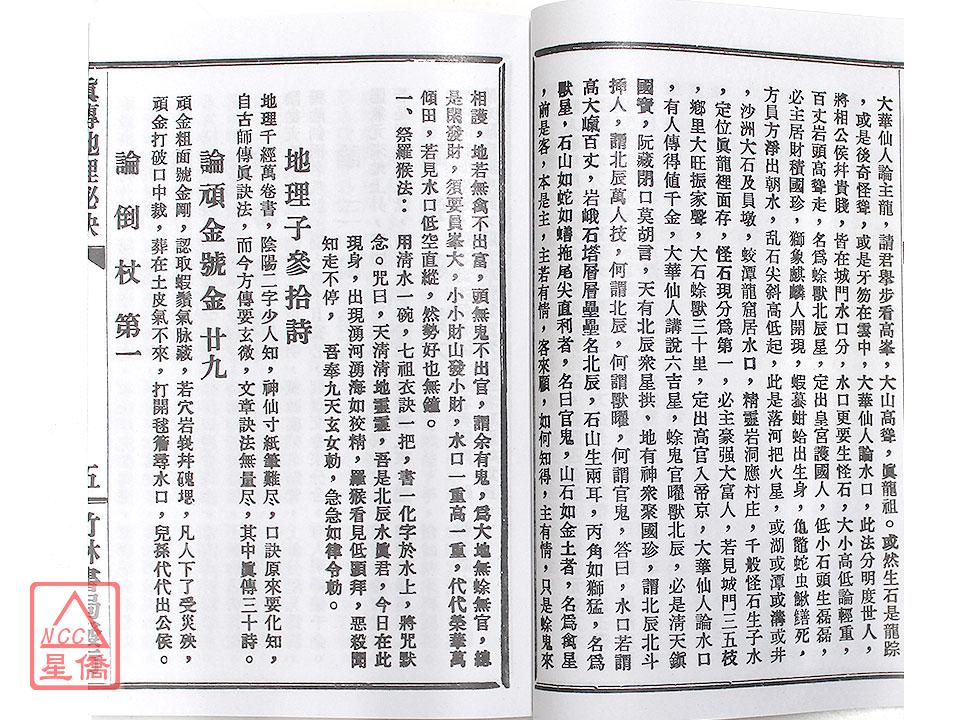 大華仙人論主龍，請君學步看高峯，大山高聳，眞龍祖。或然生石是龍踪
，或是後奇怪聳，或是牙笏在雲中，大華仙人論水口，此法分明度世人，
將相公侯幷貴賤，皆在城門水口分，水口更要生怪石，大小高低論輕重，
百丈岩頭高聳走，名爲蜍獸北辰星，定出皇宮護國人，低小石頭生磊磊，
必主居財積國珍，獅象麒麟人開現，蝦蟇蚶蛤出生身，龜鼈蛇虫鰍鱔死，
方員方淨出朝水，乱石尖斜高低起，此是落河把火星，或湖或潭或溝或井
，沙洲大石及員墩，蛟潭龍窟居水口，精靈岩洞應村庄，千般怪石生子水
，定位眞龍裡面存，怪石現分爲第一，必主豪强大富人，若見城門三五枝
，鄉里大旺振家聲，大石蜍獸三十里，定出高官入帝京，大華仙人論水口
，有人傳得值千金，大華仙人講說六吉星，蜍鬼官曜獸北辰，必是淸天鎭
國寶，阮藏閉口莫胡言，天有北辰衆星拱，地有神衆聚國珍，謂北辰北斗
揷人，謂北辰萬人技，何謂北辰，何謂獸曜，何謂官鬼，答曰，水口若謂
高大巘百丈，岩峨石塔層層壘壘名北辰，石山生兩耳，丙角如獅猛，名爲
獸星，石山如蛇如蟮拖尾尖直利者，名曰官鬼，山石如金土者，名爲禽星
，前是客，本是主，主若有情，客來顧，如何知得，主有情，只是蜍鬼來
相護，地若無禽不出富，頭無鬼不出官，謂余有鬼，爲大地無蜍無官，纏
是閑發財，須要員峯大，小小財山發小財，水口一重高一重，代代榮華萬
傾田，若見水口低空直縱，然勢好也無鐘。
一、祭羅猴法：用淸水一碗，七祖衣訣一把，書一化字於水上，將咒默
念。咒曰，天淸淸地靈靈，吾是北辰水眞君，今日在此
現身，出現湧河湧海如狡精，羅猴看見低頭拜，惡殺聞
知走不停，　吾奉九天玄女勅，急急如律令勅。
地理子參拾詩
地理千經萬卷書，陰陽二字少人知，神仙寸紙筆難尽，口訣原來要化知，
自古師傳眞訣法，而今方傳要玄微，文章訣法無量尽，其中眞傳三十詩。
論頑金號金 廿九
頑金粗面號金剛，認取蝦鬚氣脉藏，若穴岩㠝幷磈磥，凡人下了受災殃，
頑金打破口中裁，葬在土皮氣不來，打開毯簷尋水口，兒孫代代出公侯。
論倒杖第一
眞傳地理祕訣
五
竹林書局
NCC
星僑